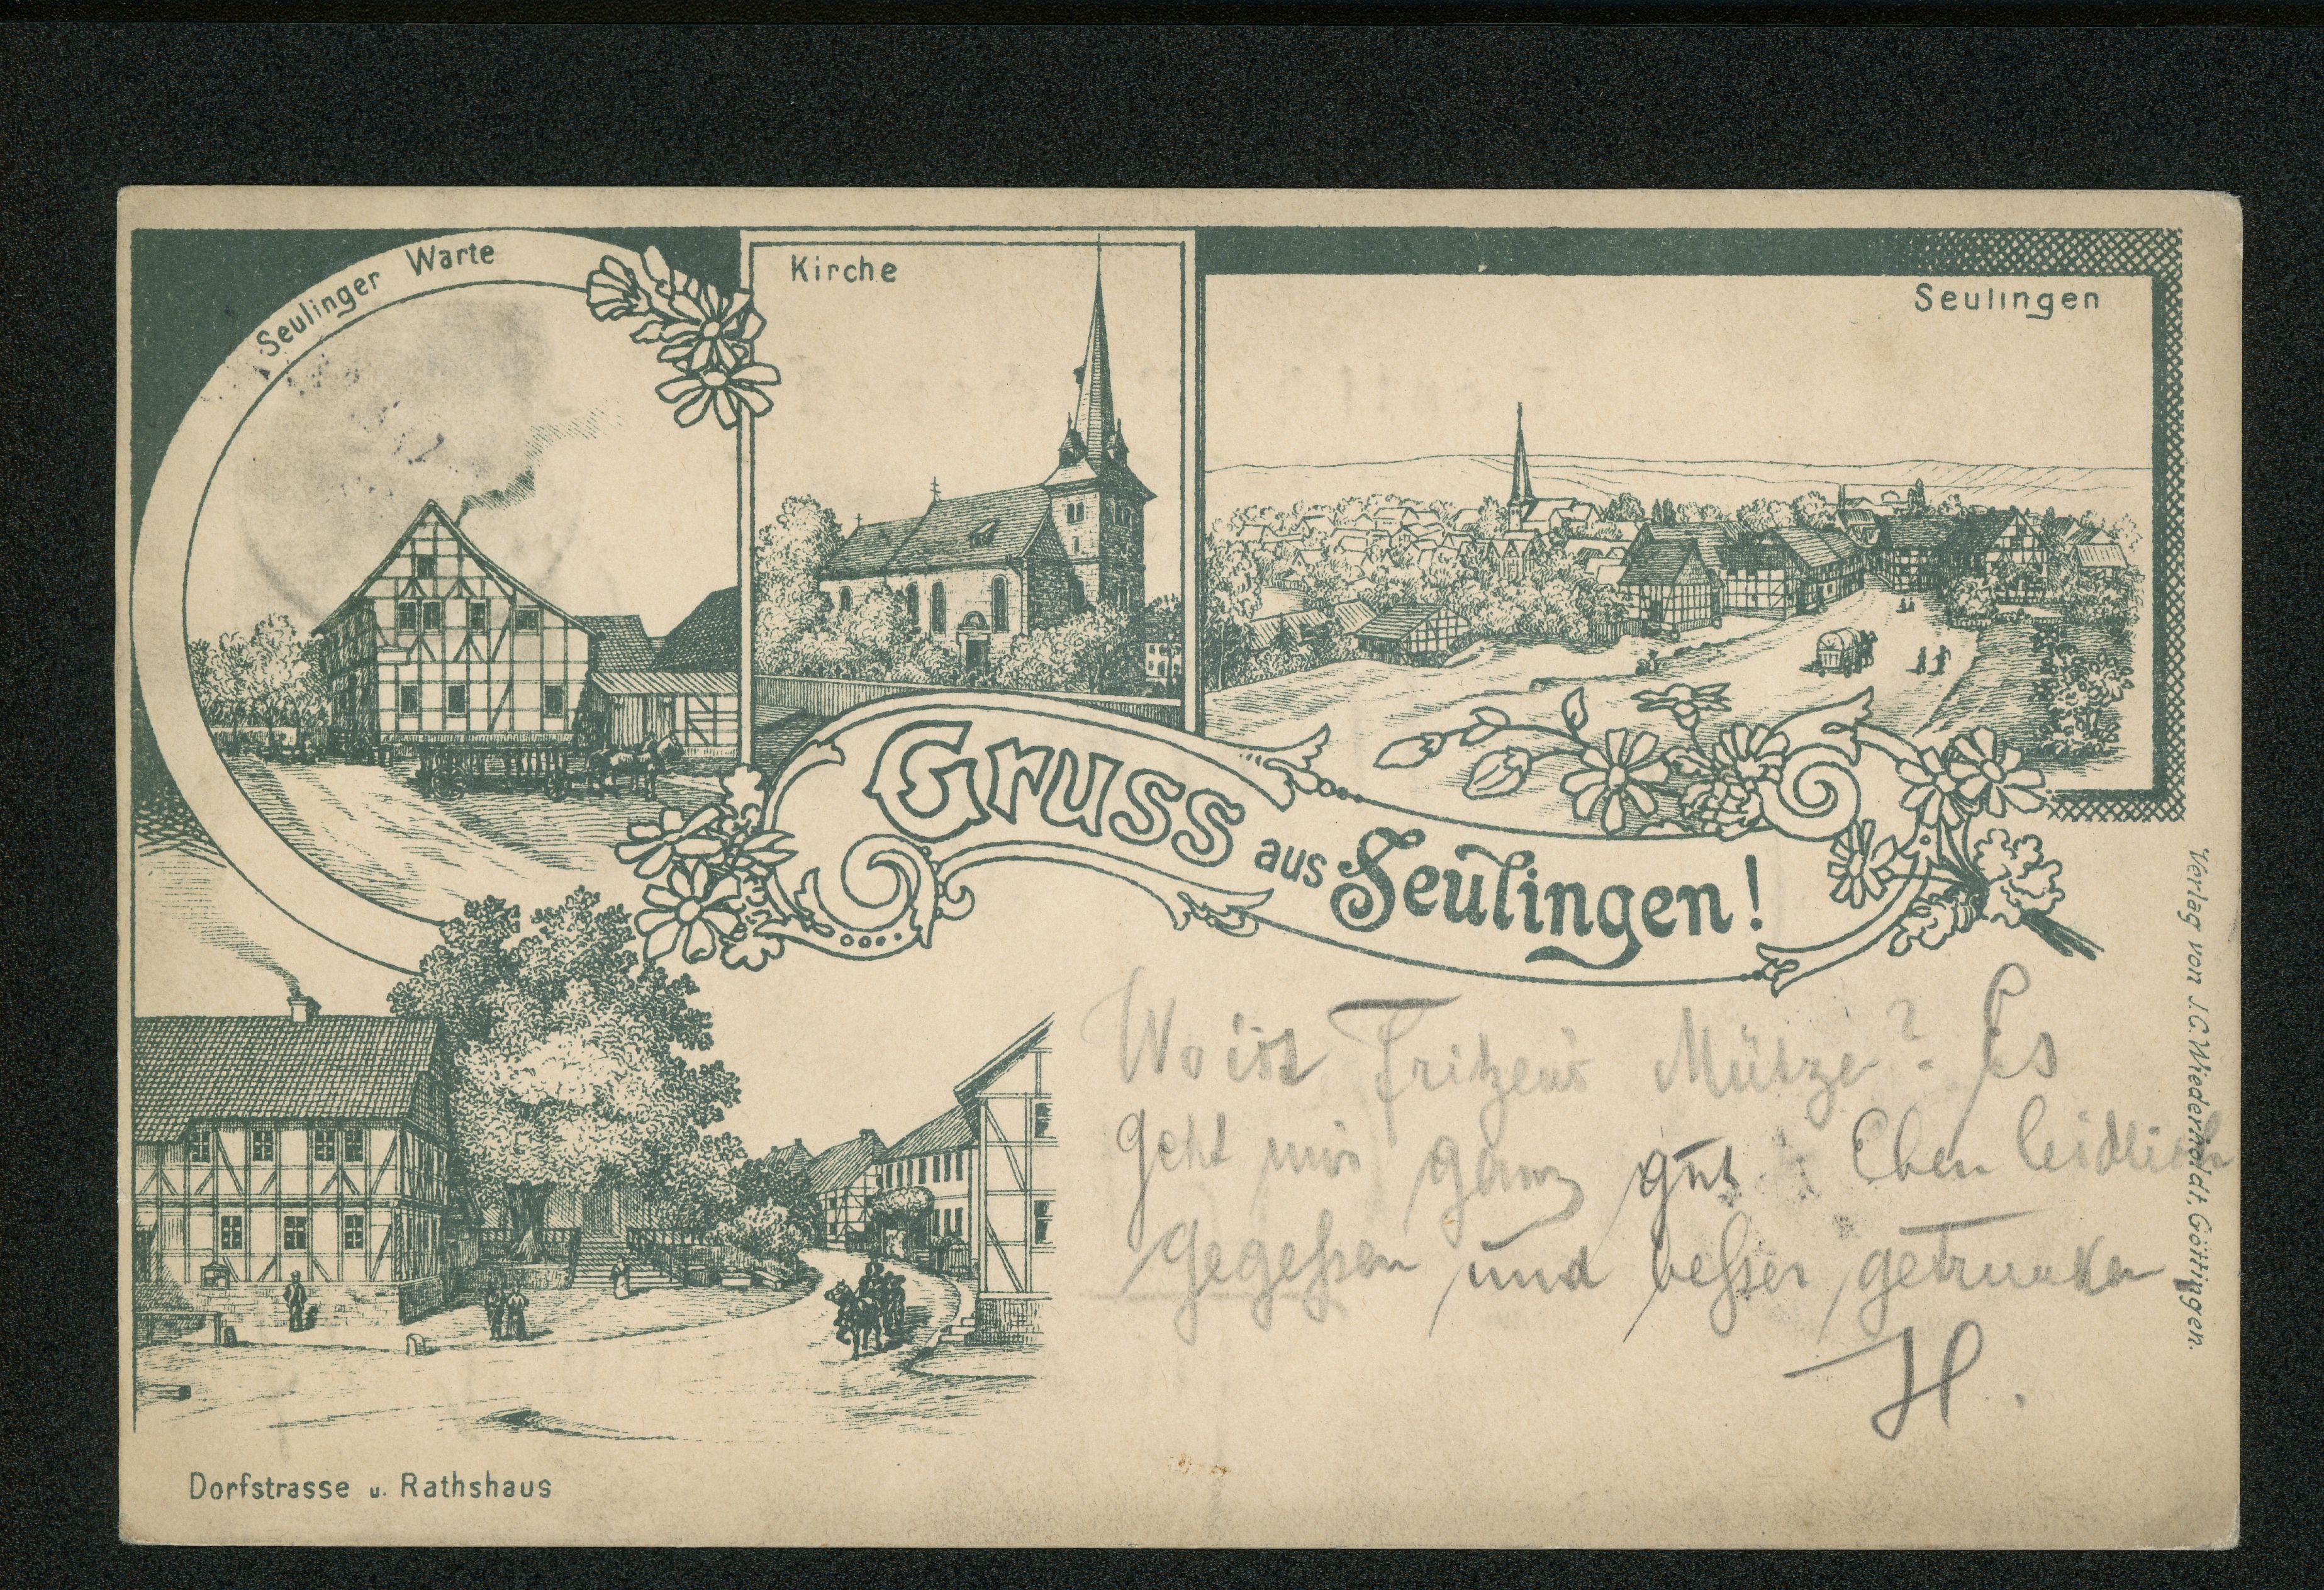 Seulinger Warte
Kirche
Seulingen
Gruss aus Seulingen!
Wo ist Fritzens Mütze? Es
geht mir ganz gut Eben leidlich
gegessen und besser getrunken
H.
Dorfstrasse u. Rathshaus
Verlag von J.C. Wiederholdt, Göttingen.